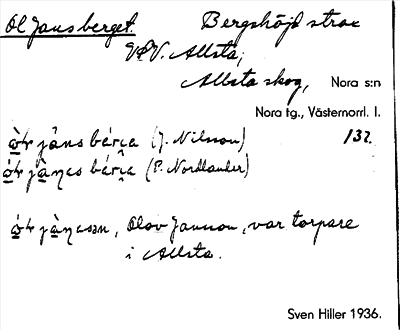 Ol Jans berget. Bergshöjd strax
V & V. Allsta,
Allsta skog, Nora s:n
Nora tg., Västernorrl. l.
jåns (J. Nilsson) 132.
(P. Nordlander)
Olov Jansson, var torpare
i Allsta.
Sven Hiller 1936.